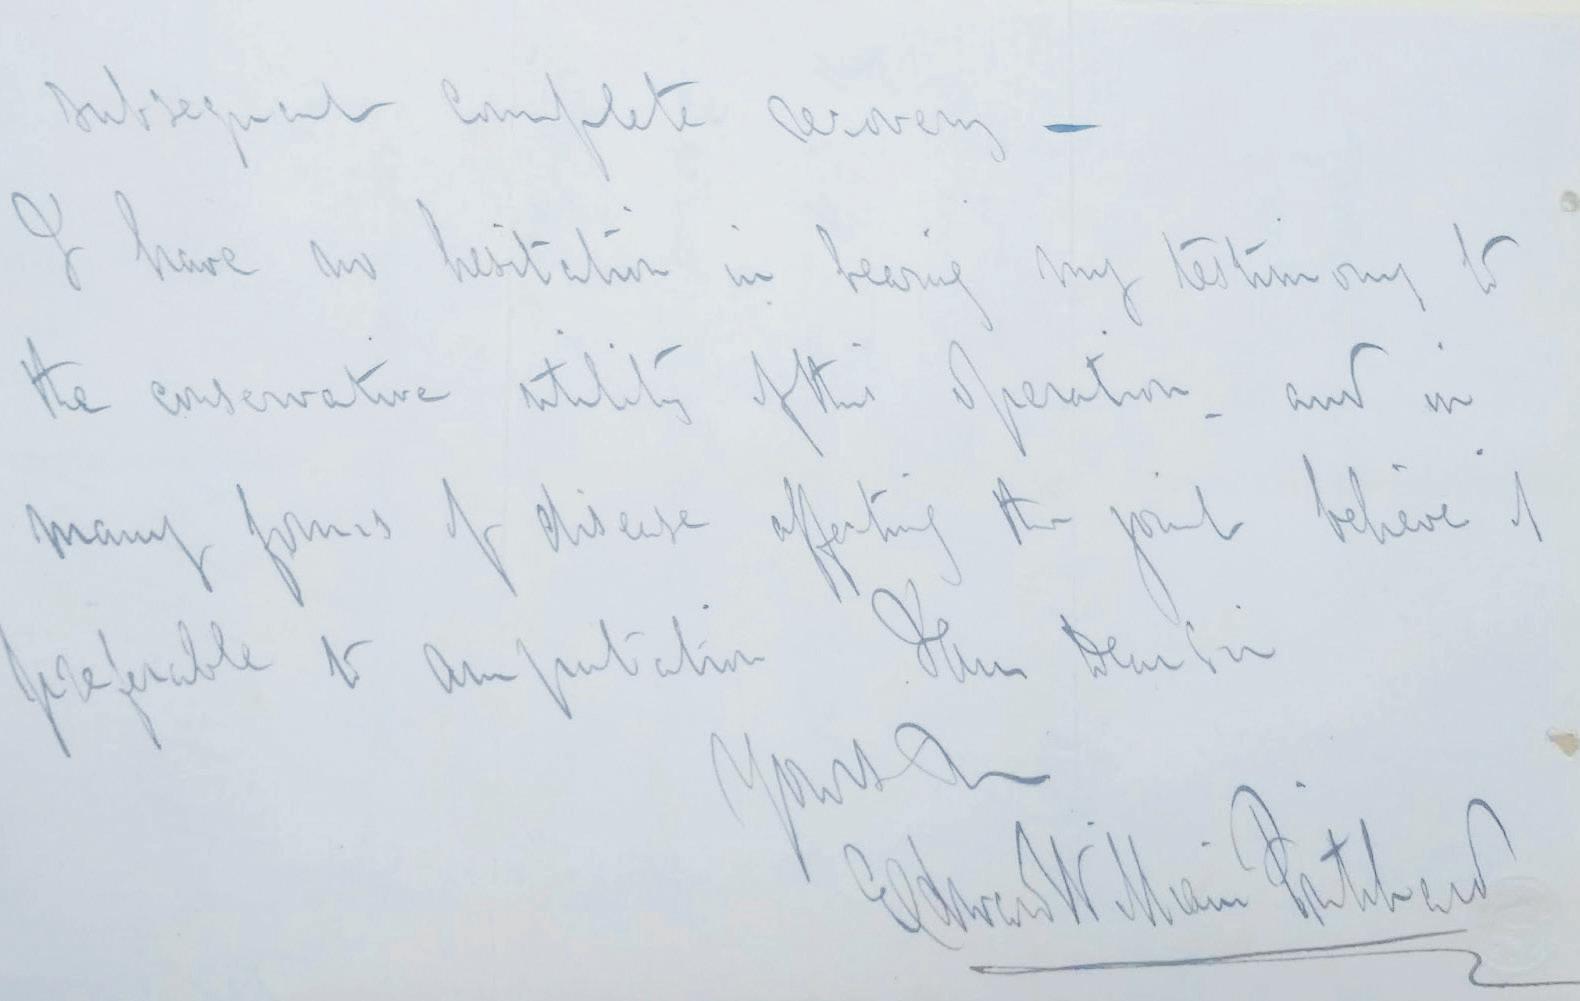 subsequent complete recovery —
I have no hesitation in bearing my testimony to
the conservative utility of this operation - and in
many forms of disease affecting the joint believe it
preferable to amputation I am Dear Sir
Yours
Edward William